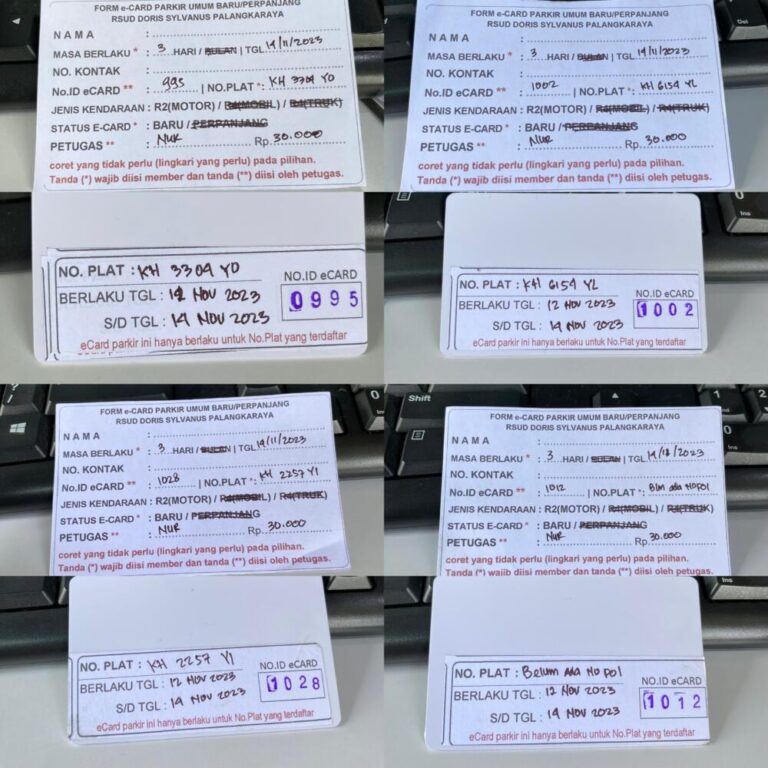 FORM e-CARD PARKIR UMUM BARU/PERPANJANG
RSUD DORIS SYLVANUS PALANGKARAYA
N A M A :
MASA BERLAKU * : 3 HARI / BULAN | TGL 14/11/2023
NO. KONTAK :
No.ID eCARD ** : 995 | NO.PLAT *: KH 3304 YD
JENIS KENDARAAN : R2(MOTOR) / R4(MOBIL) / R4(TRUK)
STATUS E-CARD * : BARU / PERPANJANG
PETUGAS ** : NUR Rp. 30.000
coret yang tidak perlu (lingkari yang perlu) pada pilihan.
Tanda (*) wajib diisi member dan tanda (**) diisi oleh petugas.
FORM e-CARD PARKIR UMUM BARU/PERPANJANG
RSUD DORIS SYLVANUS PALANGKARAYA
N A M A :
MASA BERLAKU * : 3 HARI / BULAN | TGL 14/11/2023
NO. KONTAK :
No.ID eCARD ** : 1002 | NO.PLAT *: KH 6154 YL
JENIS KENDARAAN : R2(MOTOR) / R4(MOBIL) / R4(TRUK)
STATUS E-CARD * : BARU / PERPANJANG
PETUGAS ** : NUR Rp. 30.000
coret yang tidak perlu (lingkari yang perlu) pada pilihan.
Tanda (*) wajib diisi member dan tanda (**) diisi oleh petugas.
NO. PLAT : KH 3304 YD
NO.ID eCARD
BERLAKU TGL : 12 NOV 2023
0995
S/D TGL : 14 NOV 2023
eCard parkir ini hanya berlaku untuk No.Plat yang terdaftar
NO. PLAT : KH 6154 YL
NO.ID eCARD
BERLAKU TGL : 12 NOV 2023
1002
S/D TGL : 14 NOV 2023
eCard parkir ini hanya berlaku untuk No.Plat yang terdaftar
FORM e-CARD PARKIR UMUM BARU/PERPANJANG
RSUD DORIS SYLVANUS PALANGKARAYA
N A M A :
MASA BERLAKU * : 3 HARI / BULAN | TGL 14/11/2023
NO. KONTAK :
No.ID eCARD ** : 1028 | NO.PLAT *: KH 2257 YI
JENIS KENDARAAN : R2(MOTOR) / R4(MOBIL) / R4(TRUK)
STATUS E-CARD * : BARU / PERPANJANG
PETUGAS ** : NUR Rp. 30.000
coret yang tidak perlu (lingkari yang perlu) pada pilihan.
Tanda (*) wajib diisi member dan tanda (**) diisi oleh petugas.
Shift
FORM e-CARD PARKIR UMUM BARU/PERPANJANG
RSUD DORIS SYLVANUS PALANGKARAYA
N A M A :
MASA BERLAKU * : 3 HARI / BULAN | TGL
NO. KONTAK :
No.ID eCARD ** : 1012 | NO.PLAT *: Blm ada NOPOL
JENIS KENDARAAN : R2(MOTOR) / R4(MOBIL) / R4(TRUK)
STATUS E-CARD * : BARU / PERPANJANG
PETUGAS ** : NUR Rp. 30.000
coret yang tidak perlu (lingkari yang perlu) pada pilihan.
Tanda (*) wajib diisi member dan tanda (**) diisi oleh petugas.
NO. PLAT : KH 2257 YI
NO.ID eCARD
BERLAKU TGL : 12 NOV 2023
1028
S/D TGL : 14 NOV 2023
eCard parkir ini hanya berlaku untuk No.Plat yang terdaftar
NO. PLAT : Belum Ada No pol
NO.ID eCARD
BERLAKU TGL : 12 NOV 2023
1012
S/D TGL : 14 NOV 2023
eCard parkir ini hanya berlaku untuk No.Plat yang terdaftar